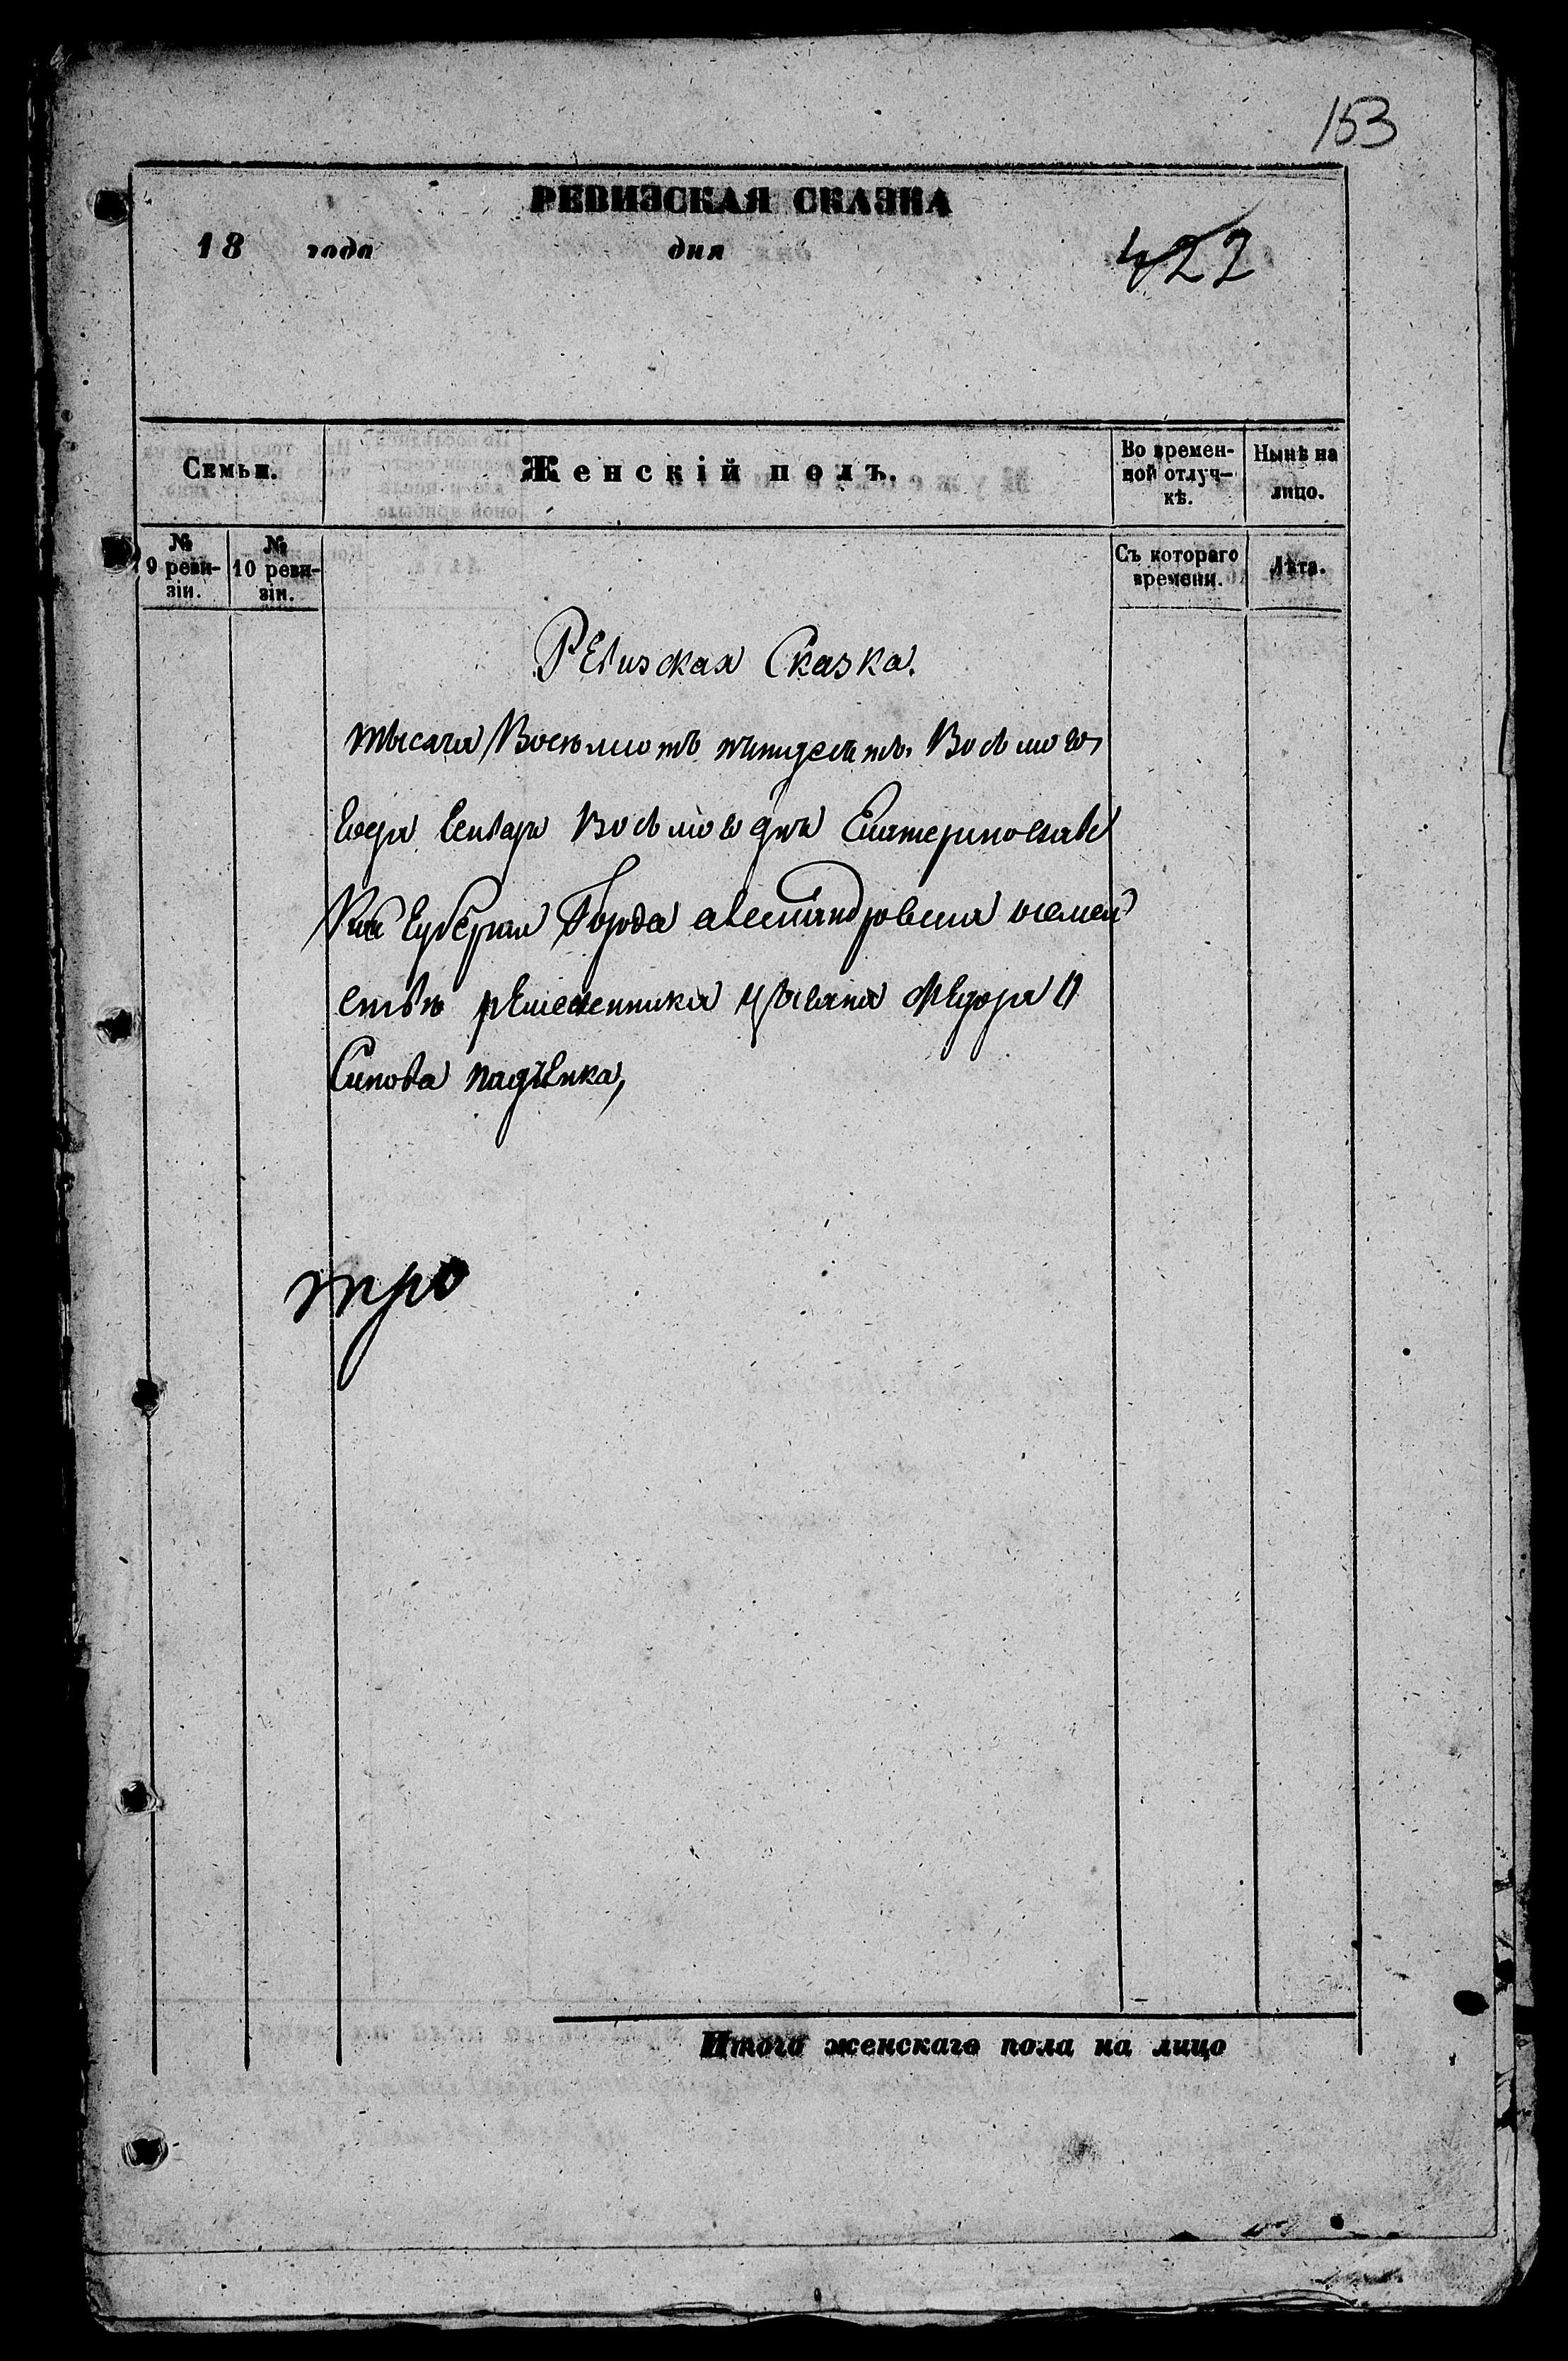 153
РЕВИЗСКАЯ СКАЗКА
18 года дня
422
Семьи. Женскій полъ. Во времен-ной отлуч-кѣ. Нынѣ на лицо.
№ 9 реви-зіи. № 10 реви-зіи. Съ котораго времени. Лѣта.
Ревизская Сказка.
тысяча Восемьсотъ пятдесятъ Восьмого
Года Генваря Восьмого дня Екатеринослав
Губерніи Города Александровска
ремесленника цыгана Федора
падчЕнка,
тро
Итого женскаго пола на лицо